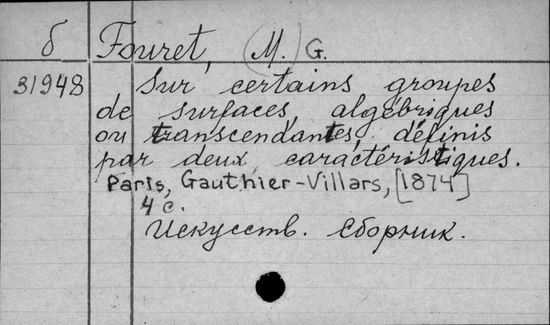 б Fouret, (M.) G.
31948 Sur certains groupes
de surfaces algébriques
ou transcendantes définis
par deux caractéristiques.
Paris, Gauthier-Villars, [1874]
4 с.
Искусств. сборник.